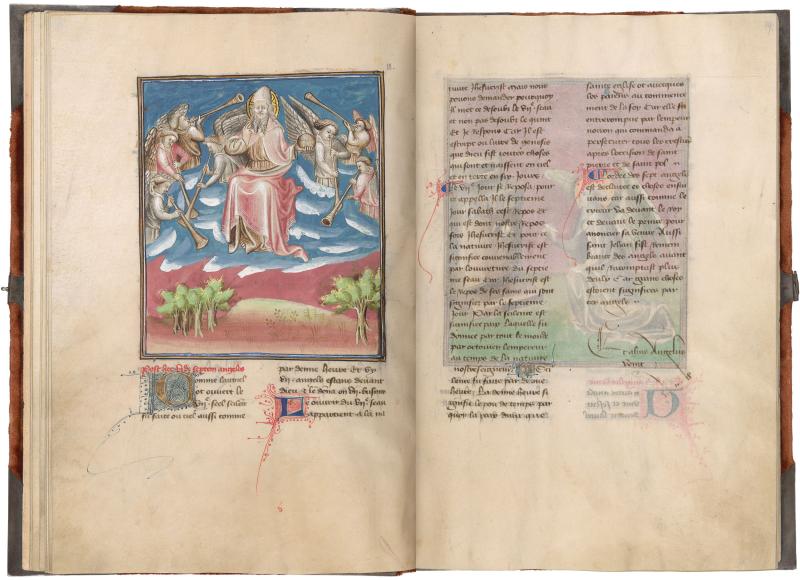 Post hec vidi septem angelos
omme laignel
ot ouvert le
vijᵉ seel selen
su faite ou ciel aussi comme
par demie heure Et vy
vij angels estans devant
dieu Et le dona on vij busines
e ouvert du vijᵉ seau
appartient a la na
tivite Jhesucrist Mais nous
povons demander pourquoy
il met ce desoubz le vijᵉ seau
et non pas desoubz le quint
Et Je respons Car Il est
escript ou livre de genesis
que dieu fist toutes choses
qui sont et naissent en ciel
et en terre en six Jours
Et vijᵉ Jour se reposa pour
ce appella Il le septieme
Jour sabath cest repos et
qui est dont nostre repos
fors Jhesucrist Et pour ce
la nativite Jhesucrist est
signifiee convenablement
par louverture du septie
me seau Car Jhesucrist est
le repos de ses sains qui sont
signifiez par le septieme
Jour Par la scilence est
signifiee paix laquelle fu
donnee par tout le monde
par octovien lempereur
au temps de la nativite
nostre seigneur
lence fu faite par demie
heure La demie heure si
gnifie le pou de temps par
quoy la paix dura que
sainte eglise et auecques
les paiens au commence
ment de la foy Car elle fu
entrerompue par lempereur
noiron qui commanda a
persecuter tous les crestiens
apres loccision de saint
pierre et de saint pol
Lordre des sept angels
est declairee es choses ensui
vans car aussi comme le
crieur va devant le roy
et devant le prince pour
anoncier sa venue Aussi
saint Jehan fist remem
brance des angels avant
quilz
Car grans choses
estoient signifiees par
ces angels
Et alius Angelus
venit